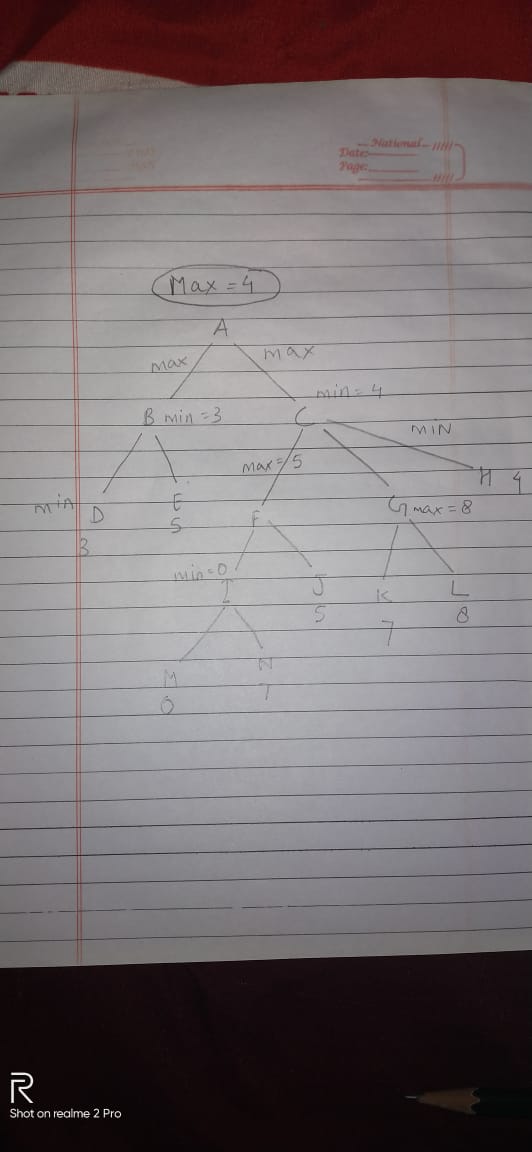 National
Date:
Page:
Max = 4
A
max max
min = 4
B min = 3 C
MIN
max = 5
min D E F G max = 8 H 4
3 5
min = 0
I J K L
5 7 8
M N
0 7
R
Shot on realme 2 Pro